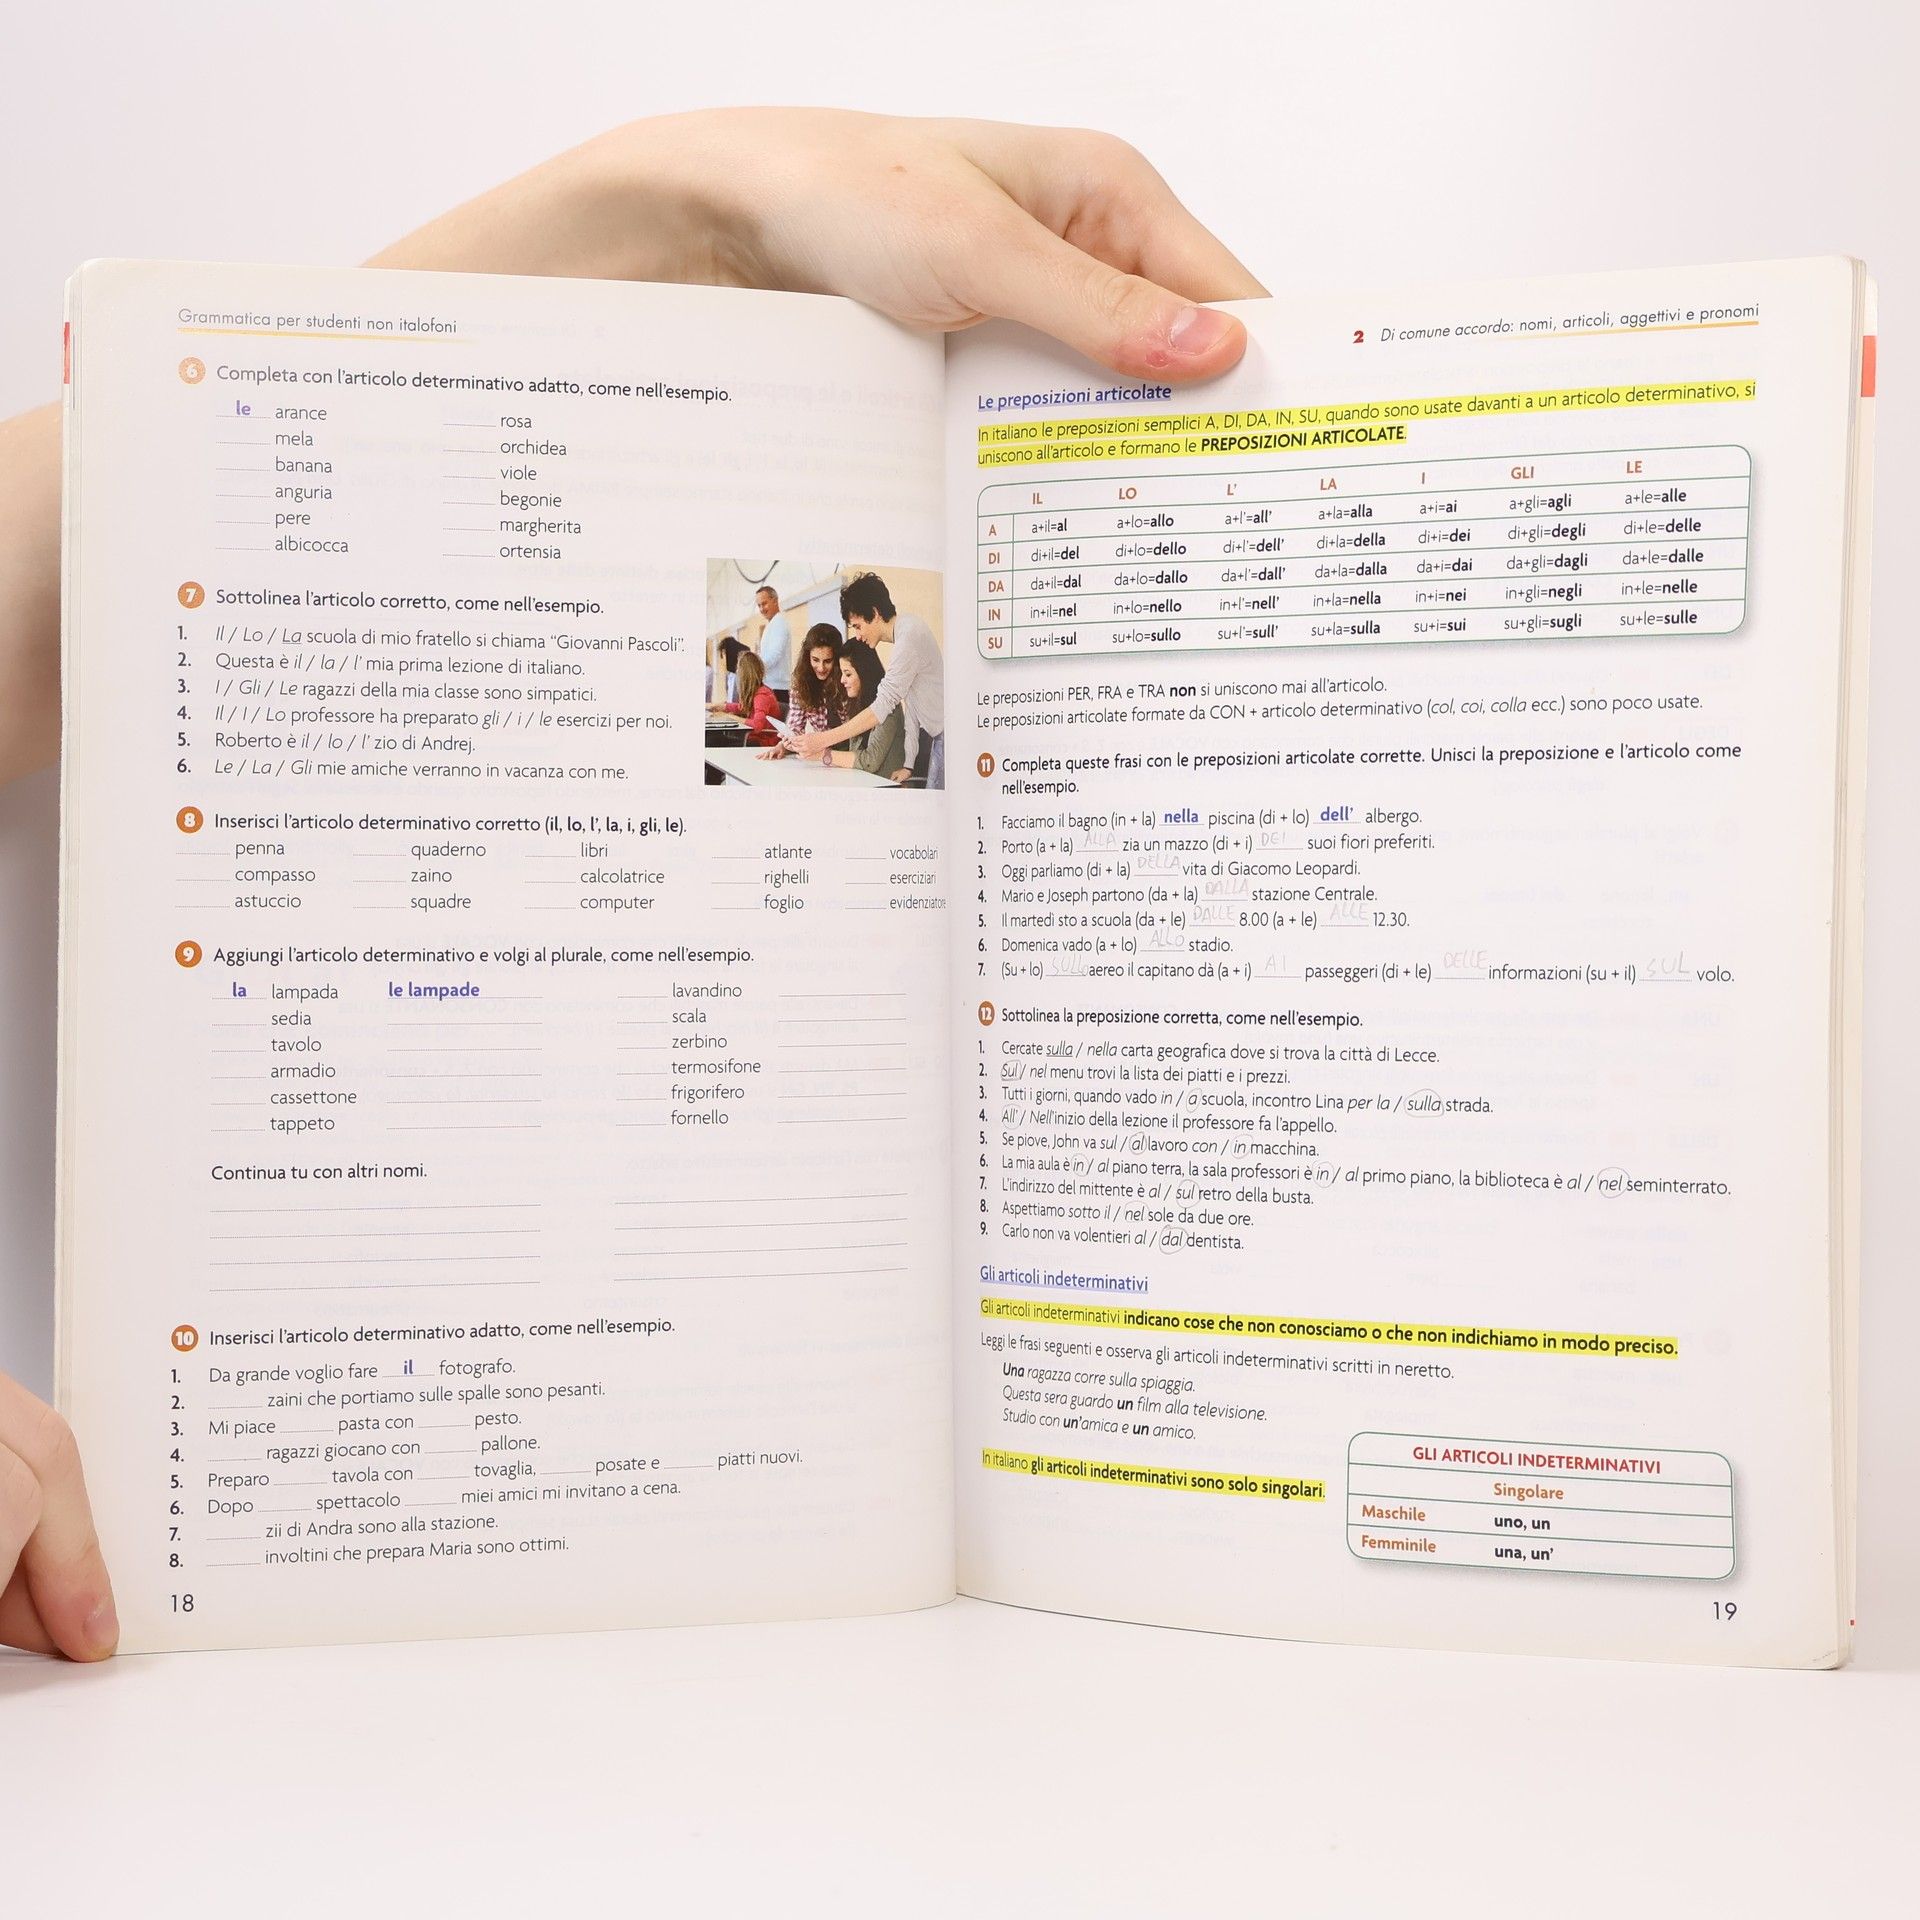 Grammatica per studenti non italofoni
6 Completa con l'articolo determinativo adatto, come nell'esempio.
le arance rosa
mela orchidea
banana viole
anguria begonie
pere margherita
albicocca ortensia
7 Sottolinea l'articolo corretto, come nell'esempio.
1. Il / Lo / La scuola di mio fratello si chiama “Giovanni Pascoli”.
2. Questa è il / la / l' mia prima lezione di italiano.
3. I / Gli / Le ragazzi della mia classe sono simpatici.
4. Il / I / Lo professore ha preparato gli / i / le esercizi per noi.
5. Roberto è il / lo / l' zio di Andrej.
6. Le / La / Gli mie amiche verranno in vacanza con me.
8 Inserisci l'articolo determinativo corretto (il, lo, l', la, i, gli, le).
penna quaderno libri atlante vocabolari
compasso zaino calcolatrice righelli eserciziari
astuccio squadre computer foglio evidenziatore
9 Aggiungi l'articolo determinativo e volgi al plurale, come nell'esempio.
la lampada le lampade lavandino
sedia scala
tavolo zerbino
armadio termosifone
cassettone frigorifero
tappeto fornello
Continua tu con altri nomi.
10 Inserisci l'articolo determinativo adatto, come nell'esempio.
1. Da grande voglio fare il fotografo.
2. zaini che portiamo sulle spalle sono pesanti.
3. Mi piace pasta con pesto.
4. ragazzi giocano con pallone.
5. Preparo tavola con tovaglia, posate e piatti nuovi.
6. Dopo spettacolo miei amici mi invitano a cena.
7. zii di Andra sono alla stazione.
8. involtini che prepara Maria sono ottimi.
18
2 Di comune accordo: nomi, articoli, aggettivi e pronomi
Le preposizioni articolate
In italiano le preposizioni semplici A, DI, DA, IN, SU, quando sono usate davanti a un articolo determinativo, si
uniscono all'articolo e formano le PREPOSIZIONI ARTICOLATE.
IL LO L' LA I GLI LE
A a+il=al a+lo=allo a+l'=all' a+la=alla a+i=ai a+gli=agli a+le=alle
DI di+il=del di+lo=dello di+l'=dell' di+la=della di+i=dei di+gli=degli di+le=delle
DA da+il=dal da+lo=dallo da+l'=dall' da+la=dalla da+i=dai da+gli=dagli da+le=dalle
IN in+il=nel in+lo=nello in+l'=nell' in+la=nella in+i=nei in+gli=negli in+le=nelle
SU su+il=sul su+lo=sullo su+l'=sull' su+la=sulla su+i=sui su+gli=sugli su+le=sulle
Le preposizioni PER, FRA e TRA non si uniscono mai all'articolo.
Le preposizioni articolate formate da CON + articolo determinativo (col, coi, colla ecc.) sono poco usate.
11 Completa queste frasi con le preposizioni articolate corrette. Unisci la preposizione e l'articolo come
nell'esempio.
1. Facciamo il bagno (in + la) nella piscina (di + lo) dell' albergo.
2. Porto (a + la) ALLA zia un mazzo (di + i) DEI suoi fiori preferiti.
3. Oggi parliamo (di + la) DELLA vita di Giacomo Leopardi.
4. Mario e Joseph partono (da + la) DALLA stazione Centrale.
5. Il martedì sto a scuola (da + le) DALLE 8.00 (a + le) ALLE 12.30.
6. Domenica vado (a + lo) ALLO stadio.
7. (Su + lo) SULLO aereo il capitano dà (a + i) AI passeggeri (di + le) DELLE informazioni (su + il) SUL volo.
12 Sottolinea la preposizione corretta, come nell'esempio.
1. Cercate sulla / nella carta geografica dove si trova la città di Lecce.
2. Sul / nel menu trovi la lista dei piatti e i prezzi.
3. Tutti i giorni, quando vado in / a scuola, incontro Lina per la / sulla strada.
4. All' / Nell'inizio della lezione il professore fa l'appello.
5. Se piove, John va sul / al lavoro con / in macchina.
6. La mia aula è in / al piano terra, la sala professori è in / al primo piano, la biblioteca è al / nel seminterrato.
7. L'indirizzo del mittente è al / sul retro della busta.
8. Aspettiamo sotto il / nel sole da due ore.
9. Carlo non va volentieri al / dal dentista.
Gli articoli indeterminativi
Gli articoli indeterminativi indicano cose che non conosciamo o che non indichiamo in modo preciso.
Leggi le frasi seguenti e osserva gli articoli indeterminativi scritti in neretto.
Una ragazza corre sulla spiaggia.
Questa sera guardo un film alla televisione.
Studio con un'amica e un amico.
In italiano gli articoli indeterminativi sono solo singolari.
GLI ARTICOLI INDETERMINATIVI
Singolare
Maschile uno, un
Femminile una, un'
19